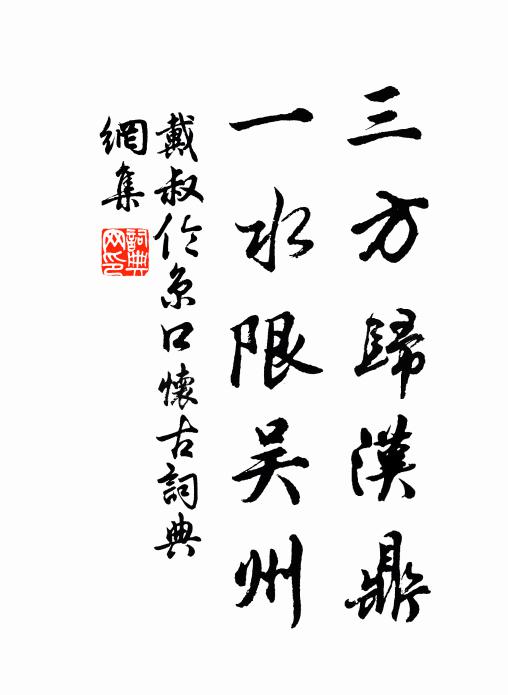 三方歸漢鼎
一水限吳州
戴叔伦京口懷古詞典
網集
詞典網印